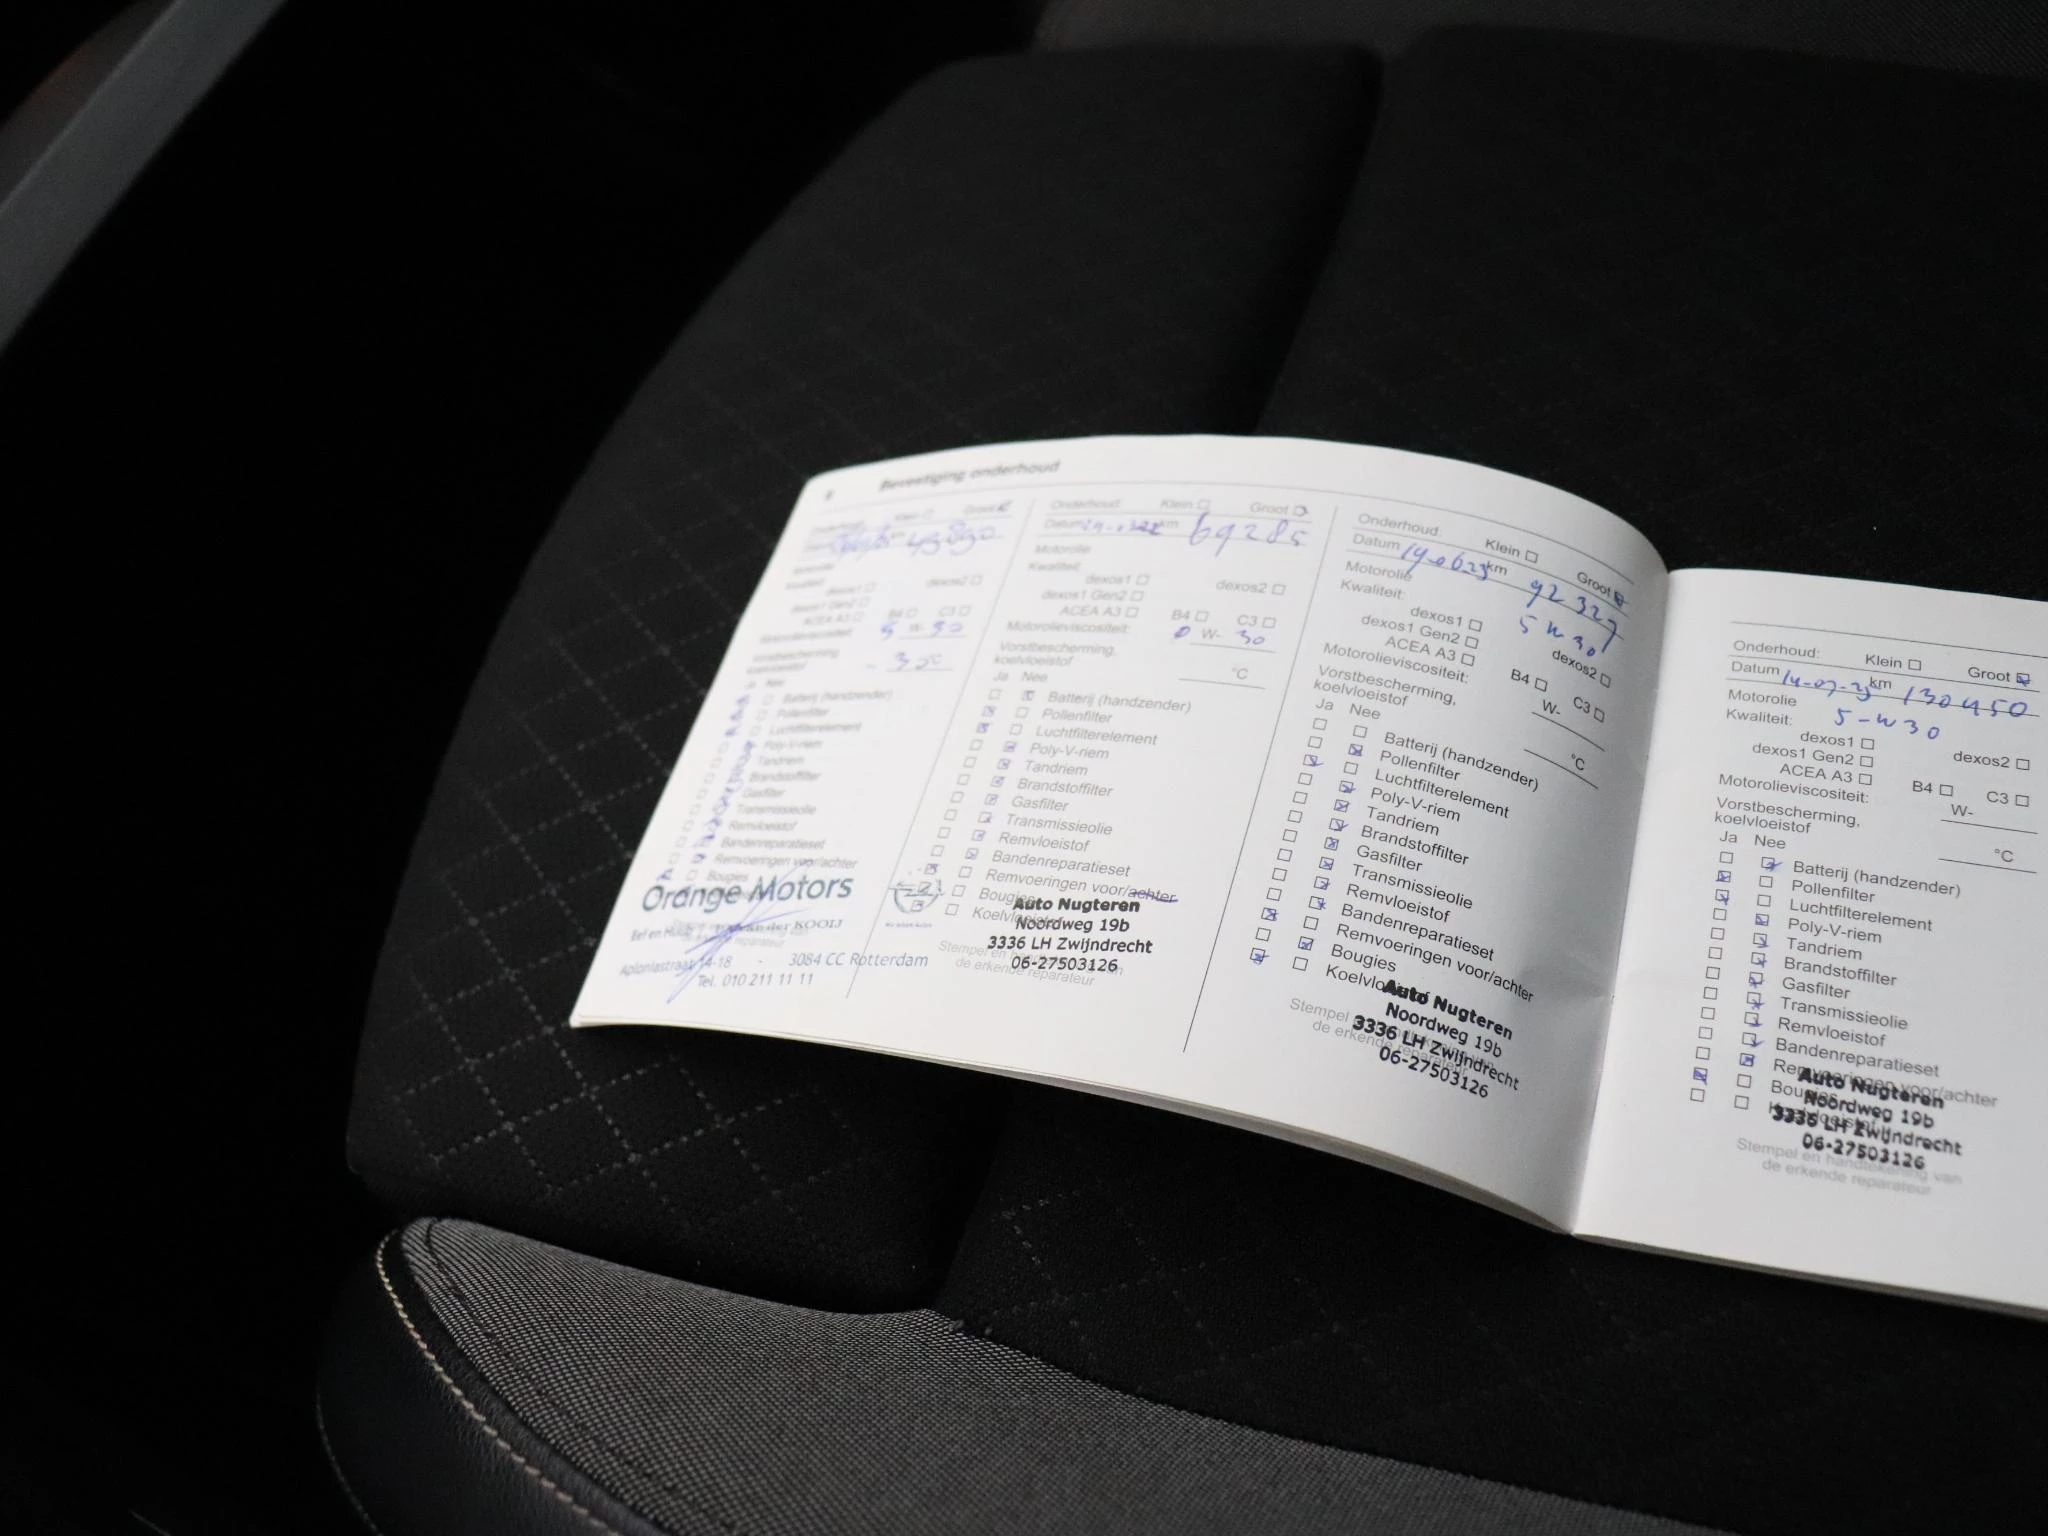 Bevestiging onderhoud
Onderhoud: Klein Groot
km
W- 30
- 30 °C
Ja Nee
Batterij (handzender)
Pollenfilter
Luchtfilterelement
Poly-V-riem
Tandriem
Brandstoffilter
Gasfilter
Transmissieolie
Remvloeistof
Bandenreparatieset
Remvoeringen voor/achter
Bougies
Orange Motors
van der KOOIJ
Aploniastraat 14-18 - 3084 CC Rotterdam
Tel. 010 211 11 11
Onderhoud: Klein Groot
Datum km 69285
Motorolie
Kwaliteit:
dexos1 dexos2
dexos1 Gen2
ACEA A3 B4 C3
Motorolieviscositeit: 0 W- 30
Vorstbescherming,
koelvloeistof °C
Ja Nee
Batterij (handzender)
Pollenfilter
Luchtfilterelement
Poly-V-riem
Tandriem
Brandstoffilter
Gasfilter
Transmissieolie
Remvloeistof
Bandenreparatieset
Remvoeringen voor/achter
Bougies
Koelvloeistof
Auto Nugteren
Noordweg 19b
3336 LH Zwijndrecht
06-27503126
Stempel en handtekening van
de erkende reparateur
Onderhoud: Klein Groot
Datum 14-06-23 km 92327
Motorolie 5 W 30
Kwaliteit:
dexos1 dexos2
dexos1 Gen2
ACEA A3 B4 C3
Motorolieviscositeit: W-
Vorstbescherming,
koelvloeistof °C
Ja Nee
Batterij (handzender)
Pollenfilter
Luchtfilterelement
Poly-V-riem
Tandriem
Brandstoffilter
Gasfilter
Transmissieolie
Remvloeistof
Bandenreparatieset
Remvoeringen voor/achter
Bougies
Koelvloeistof
Auto Nugteren
Noordweg 19b
3336 LH Zwijndrecht
06-27503126
Stempel en handtekening van
de erkende reparateur
Onderhoud: Klein Groot
Datum 14-07-25 km 130450
Motorolie 5-W30
Kwaliteit:
dexos1 dexos2
dexos1 Gen2
ACEA A3 B4 C3
Motorolieviscositeit: W-
Vorstbescherming,
koelvloeistof °C
Ja Nee
Batterij (handzender)
Pollenfilter
Luchtfilterelement
Poly-V-riem
Tandriem
Brandstoffilter
Gasfilter
Transmissieolie
Remvloeistof
Bandenreparatieset
Remvoeringen voor/achter
Bougies
Koelvloeistof
Auto Nugteren
Noordweg 19b
3336 LH Zwijndrecht
06-27503126
Stempel en handtekening van
de erkende reparateur